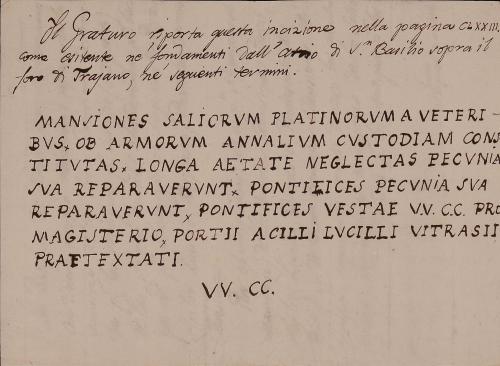 Il Graturo riporta questa incizione nella pagina CLXXIII,
come esitente ne' fondamenti dall' atrio di S.n Basilio sopra il
foro di Trajano, ne' seguenti termini.
MANSIONES SALIORUM PLATINORUM A VETERI-
BUS, OB ARMORUM ANNALIUM CUSTODIAM CONS
TITUTAS, LONGA AETATE NEGLECTAS PECUNIA
SUA REPARAVERUNT, PONTIFICES PECUNIA SUA
REPARAVERUNT, PONTIFICES VESTAE V.V. CC. PRO
MAGISTERIO, PORTII ACILLI LUCILLI VITRASII
PRAETEXTATI.
VV. CC.